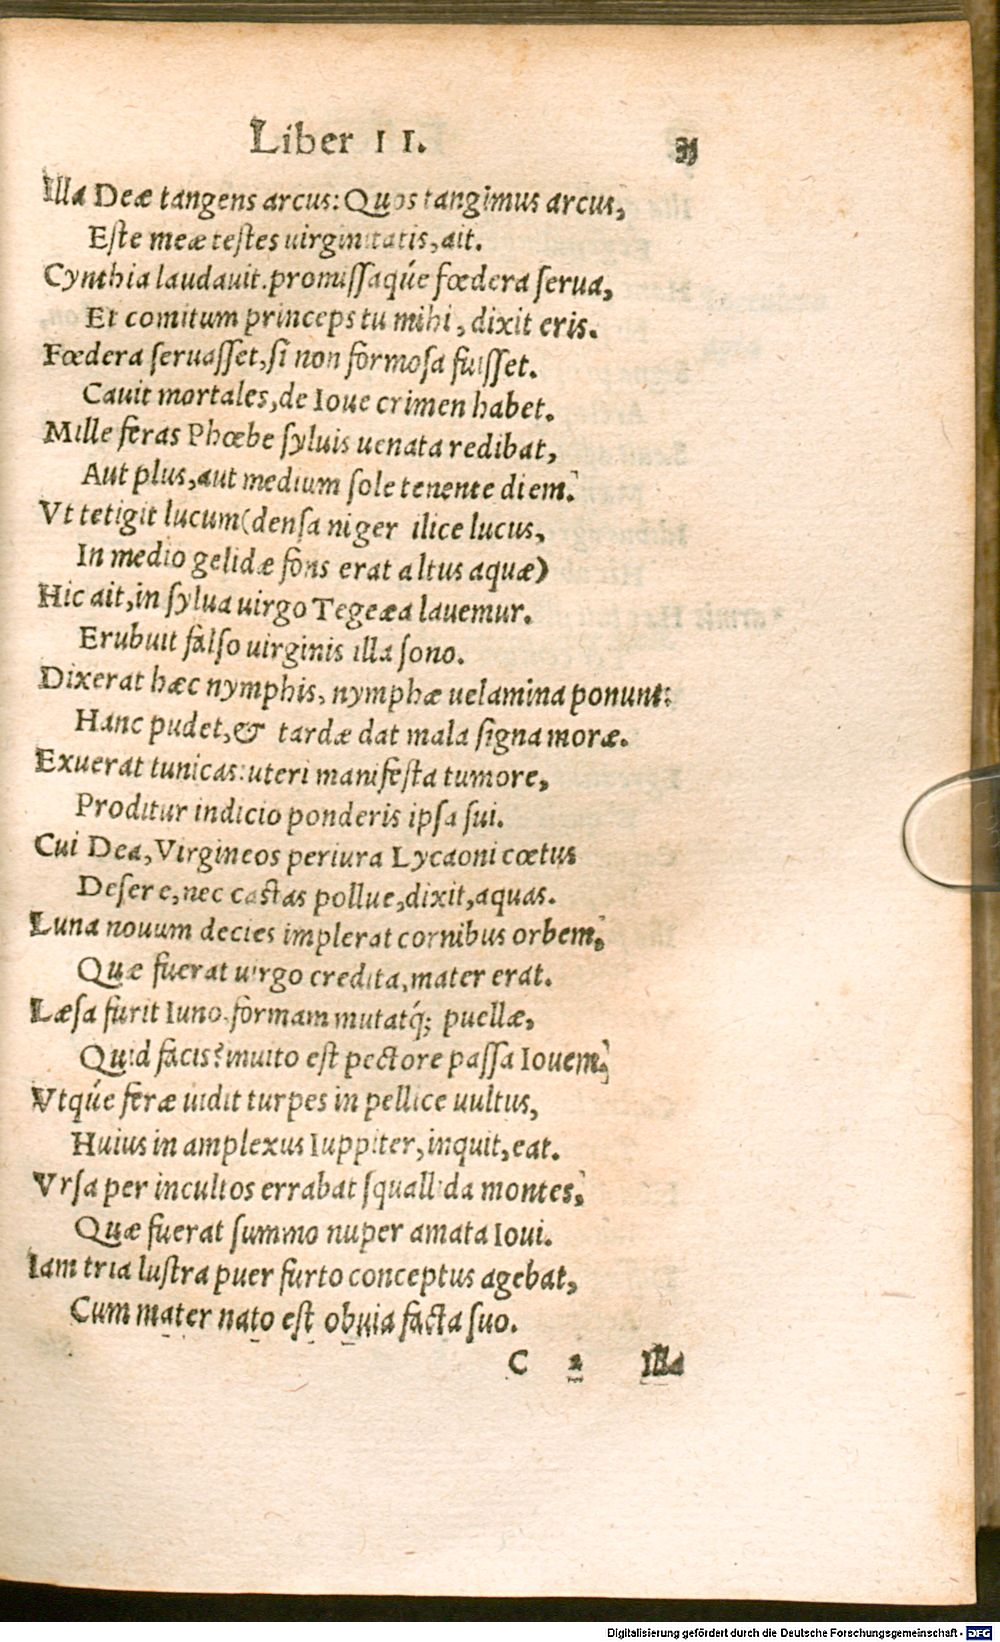 Liber II. 31
Illa Deæ tangens arcus: Quos tangimus arcus,
Este meæ testes uirginitatis, ait.
Cynthia laudauit. promissaq́ue fœdera serua,
Et comitum princeps tu mihi, dixit eris.
Fœdera seruasset, si non formosa fuisset.
Cauit mortales, de Ioue crimen habet.
Mille feras Phœbe syluis uenata redibat,
Aut plus, aut medium sole tenente diem.
Vt tetigit lucum (densa niger ilice lucus,
In medio gelidæ fons erat altus aquæ)
Hic ait, in sylua uirgo Tegeæa lauemur.
Erubuit falso uirginis illa sono.
Dixerat hæc nymphis, nymphæ uelamina ponunt:
Hanc pudet, & tardæ dat mala signa moræ.
Exuerat tunicas: uteri manifesta tumore,
Proditur indicio ponderis ipsa sui.
Cui Dea, Virgineos periura Lycaoni cœtus
Desere, nec castas pollue, dixit, aquas.
Luna nouum decies implerat cornibus orbem,
Quæ fuerat uirgo credita, mater erat.
Læsa furit Iuno. formam mutatq́; puellæ,
Quid facis? inuito est pectore passa Iouem.
Vtq́ue feræ uidit turpes in pellice uultus,
Huius in amplexus Iuppiter, inquit, eat.
Vrsa per incultos errabat squallida montes,
Quæ fuerat summo nuper amata Ioui.
Iam tria lustra puer furto conceptus agebat,
Cum mater nato est obuia facta suo.
C 2 Illa
Digitalisierung gefördert durch die Deutsche Forschungsgemeinschaft - DFG